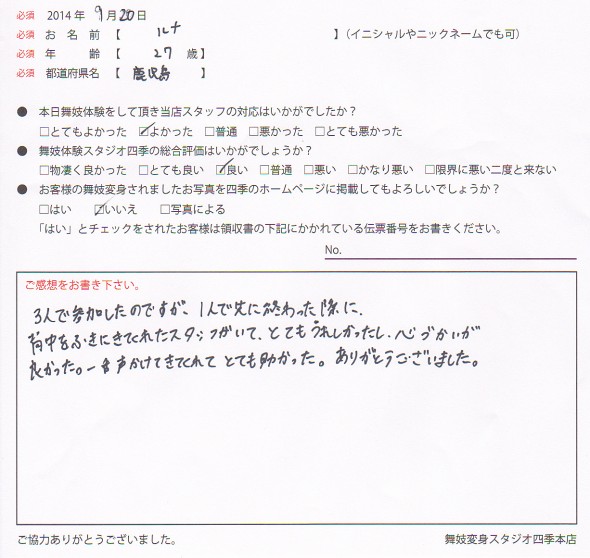 必須 2014年 9月20日
必須 お名前【 ルナ 】(イニシャルやニックネームでも可)
必須 年齢【 27 歳】
必須 都道府県名【 鹿児島 】
● 本日舞妓体験をして頂き当店スタッフの対応はいかがでしたか?
□とてもよかった ☑よかった □普通 □悪かった □とても悪かった
● 舞妓体験スタジオ四季の総合評価はいかがでしょうか?
□物凄く良かった □とても良い ☑良い □普通 □悪い □かなり悪い □限界に悪い二度と来ない
● お客様の舞妓変身されましたお写真を四季のホームページに掲載してもよろしいでしょうか?
□はい ☑いいえ □写真による
「はい」とチェックをされたお客様は領収書の下記にかかれている伝票番号をお書きください。
No.
ご感想をお書き下さい。
3人で参加したのですが、1人で先に終わった際に、
背中をふきにきてくれたスタッフがいて、とてもうれしかったし、心づかいが
良かった。一言声かけてきてくれて とても助かった。ありがとうございました。
ご協力ありがとうございました。
舞妓変身スタジオ四季本店